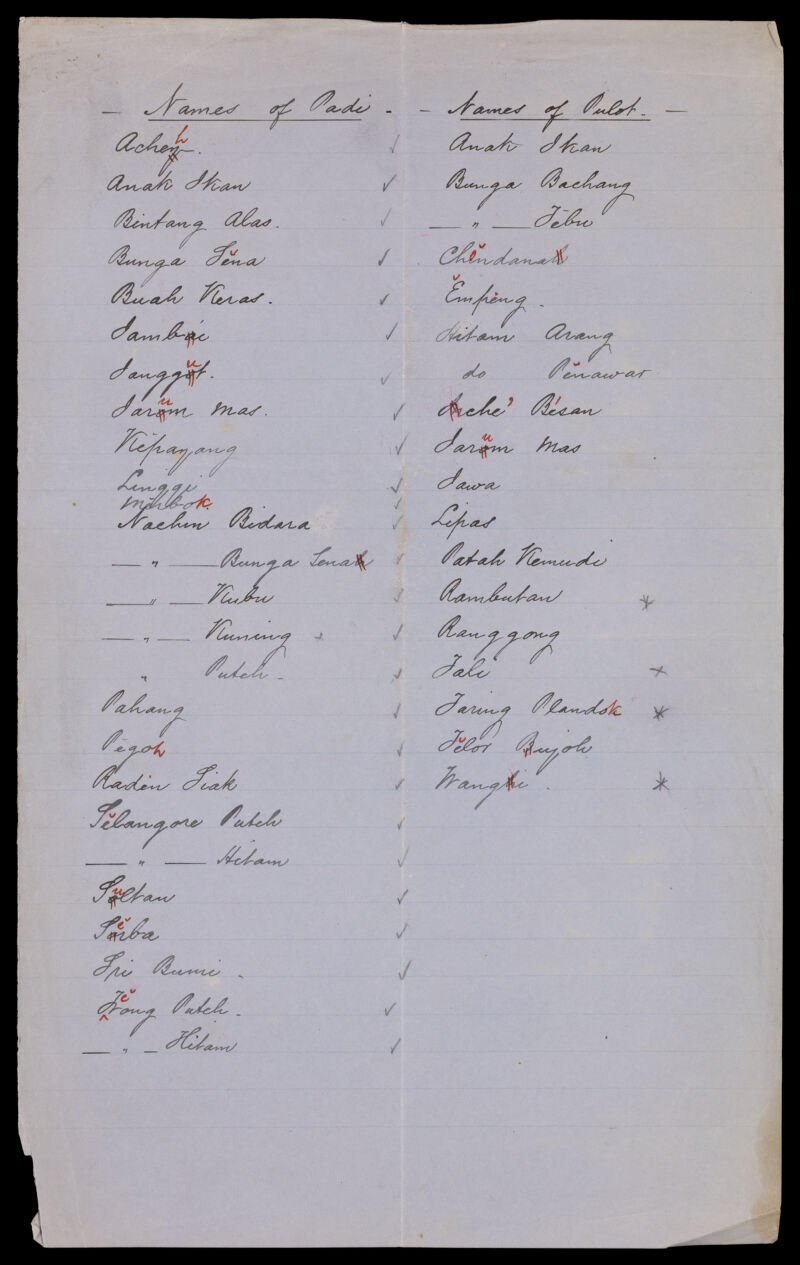 — Names of Padi -
Acheh.
Anak Ikan
Bintang Alas.
Bunga Sĕna
Buah Keras.
Jambi
Janggut.
Jarum Mas.
Kĕpayang
Linggi
Minbok
Nachin Bidara
— " — Bunga Sena
— " — Kubu
— " — Kuning
" Puteh -
Pahang
Pĕgoh
Radĕn Siak
Sĕlangore Puteh
— " — Hitam
Sultan
Sĕrba
Sri Bumi -
Puteh -
— " — Hitam
- Names of Pulot. —
Anak Ikan
Bunga Bachang
— " — Tĕbu
Chĕndana
Ĕmping.
Hitam Arang
do Pĕnawar
che' Bésan
Jarum Mas
Jawa
Lipas
Patah Kemudi
Rambutan
Ranggong
Tali
Taring Plandok
Tĕlor Bujoh
Wangi.